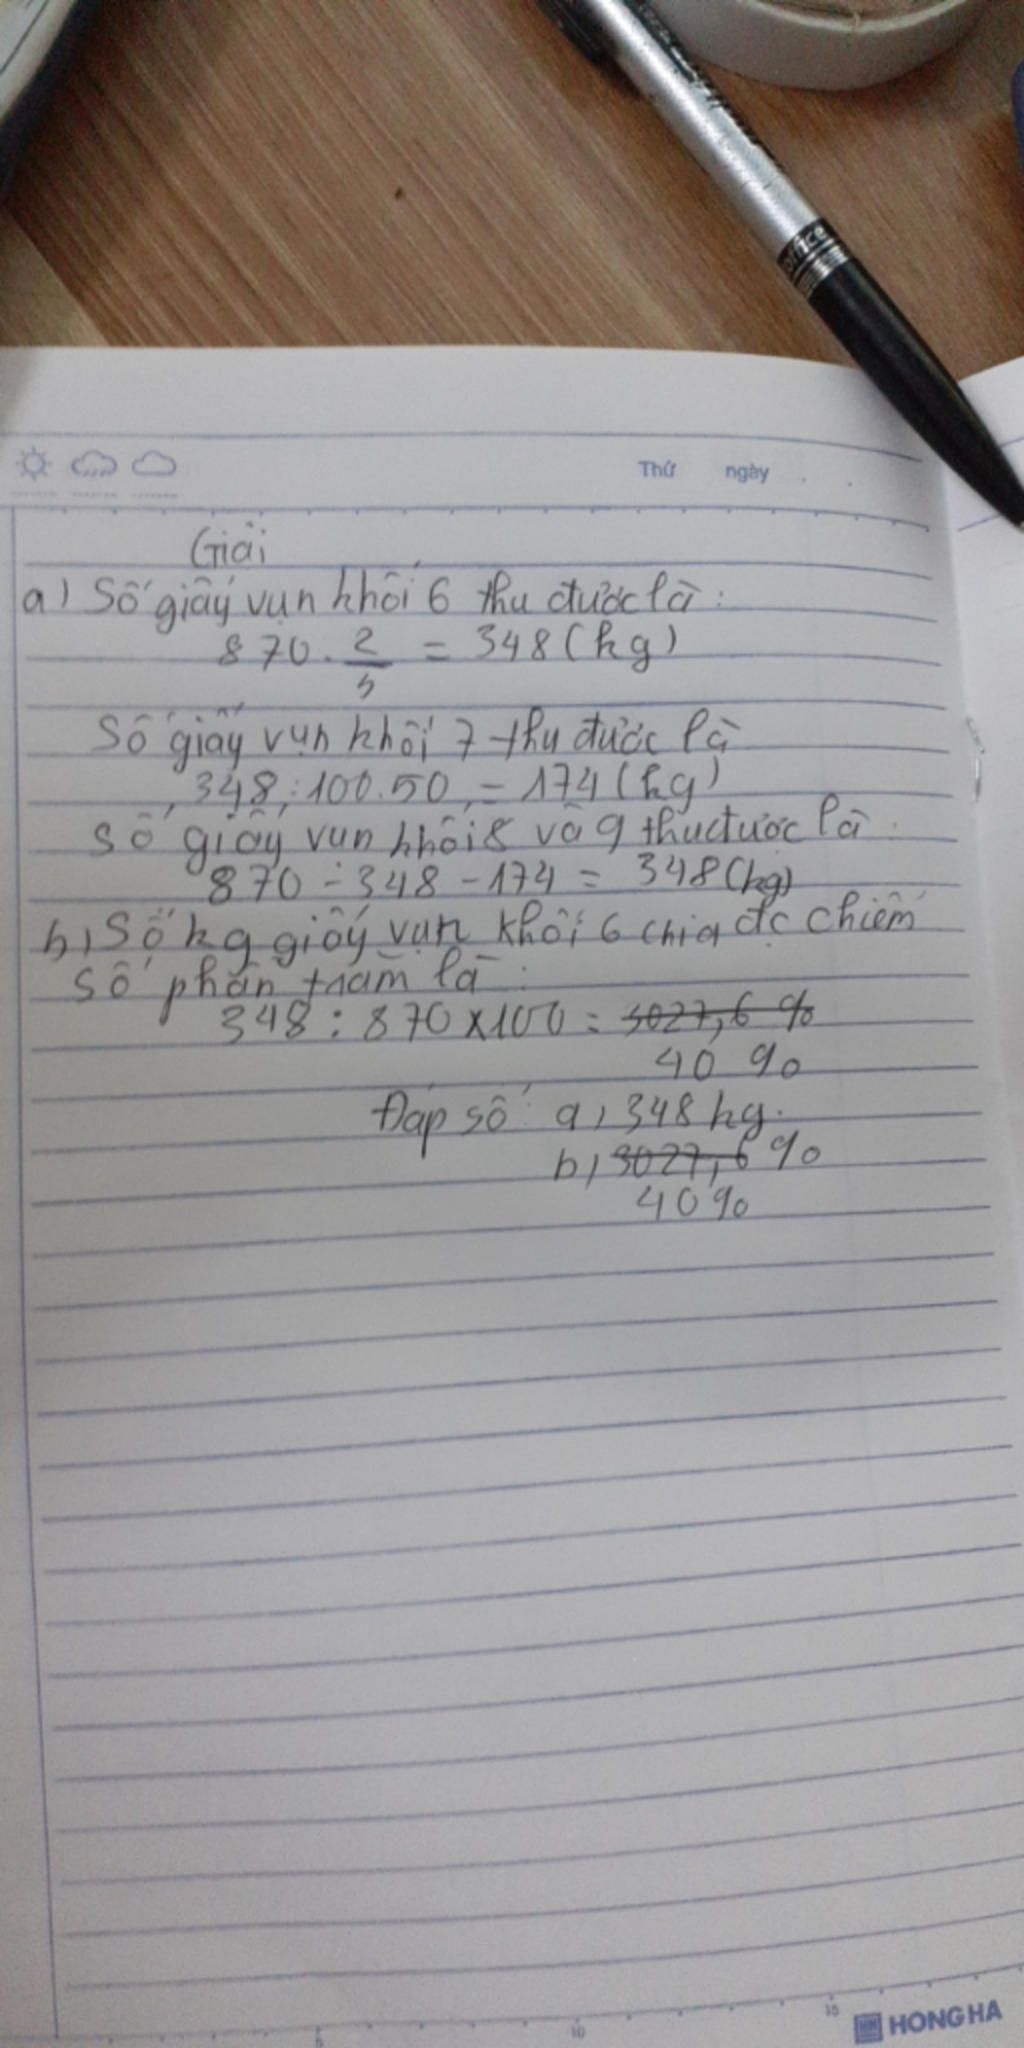 office
Thứ ngày
Giải
a) Số giấy vụn khối 6 thu được là:
870 . 2/5 = 348 (kg)
Số giấy vụn khối 7 thu được là
348 : 100 . 50 = 174 (kg)
Số giấy vụn khối 8 và 9 thu được là:
870 - 348 - 174 = 348 (kg)
b) Số kg giấy vụn khối 6 chia đc chiếm
số phần trăm là:
348 : 870 x 100 = 3027,6 %
40 %
Đáp số: a, 348 kg.
b, 3027,6 %
40 %
5 10 15
HONG HA